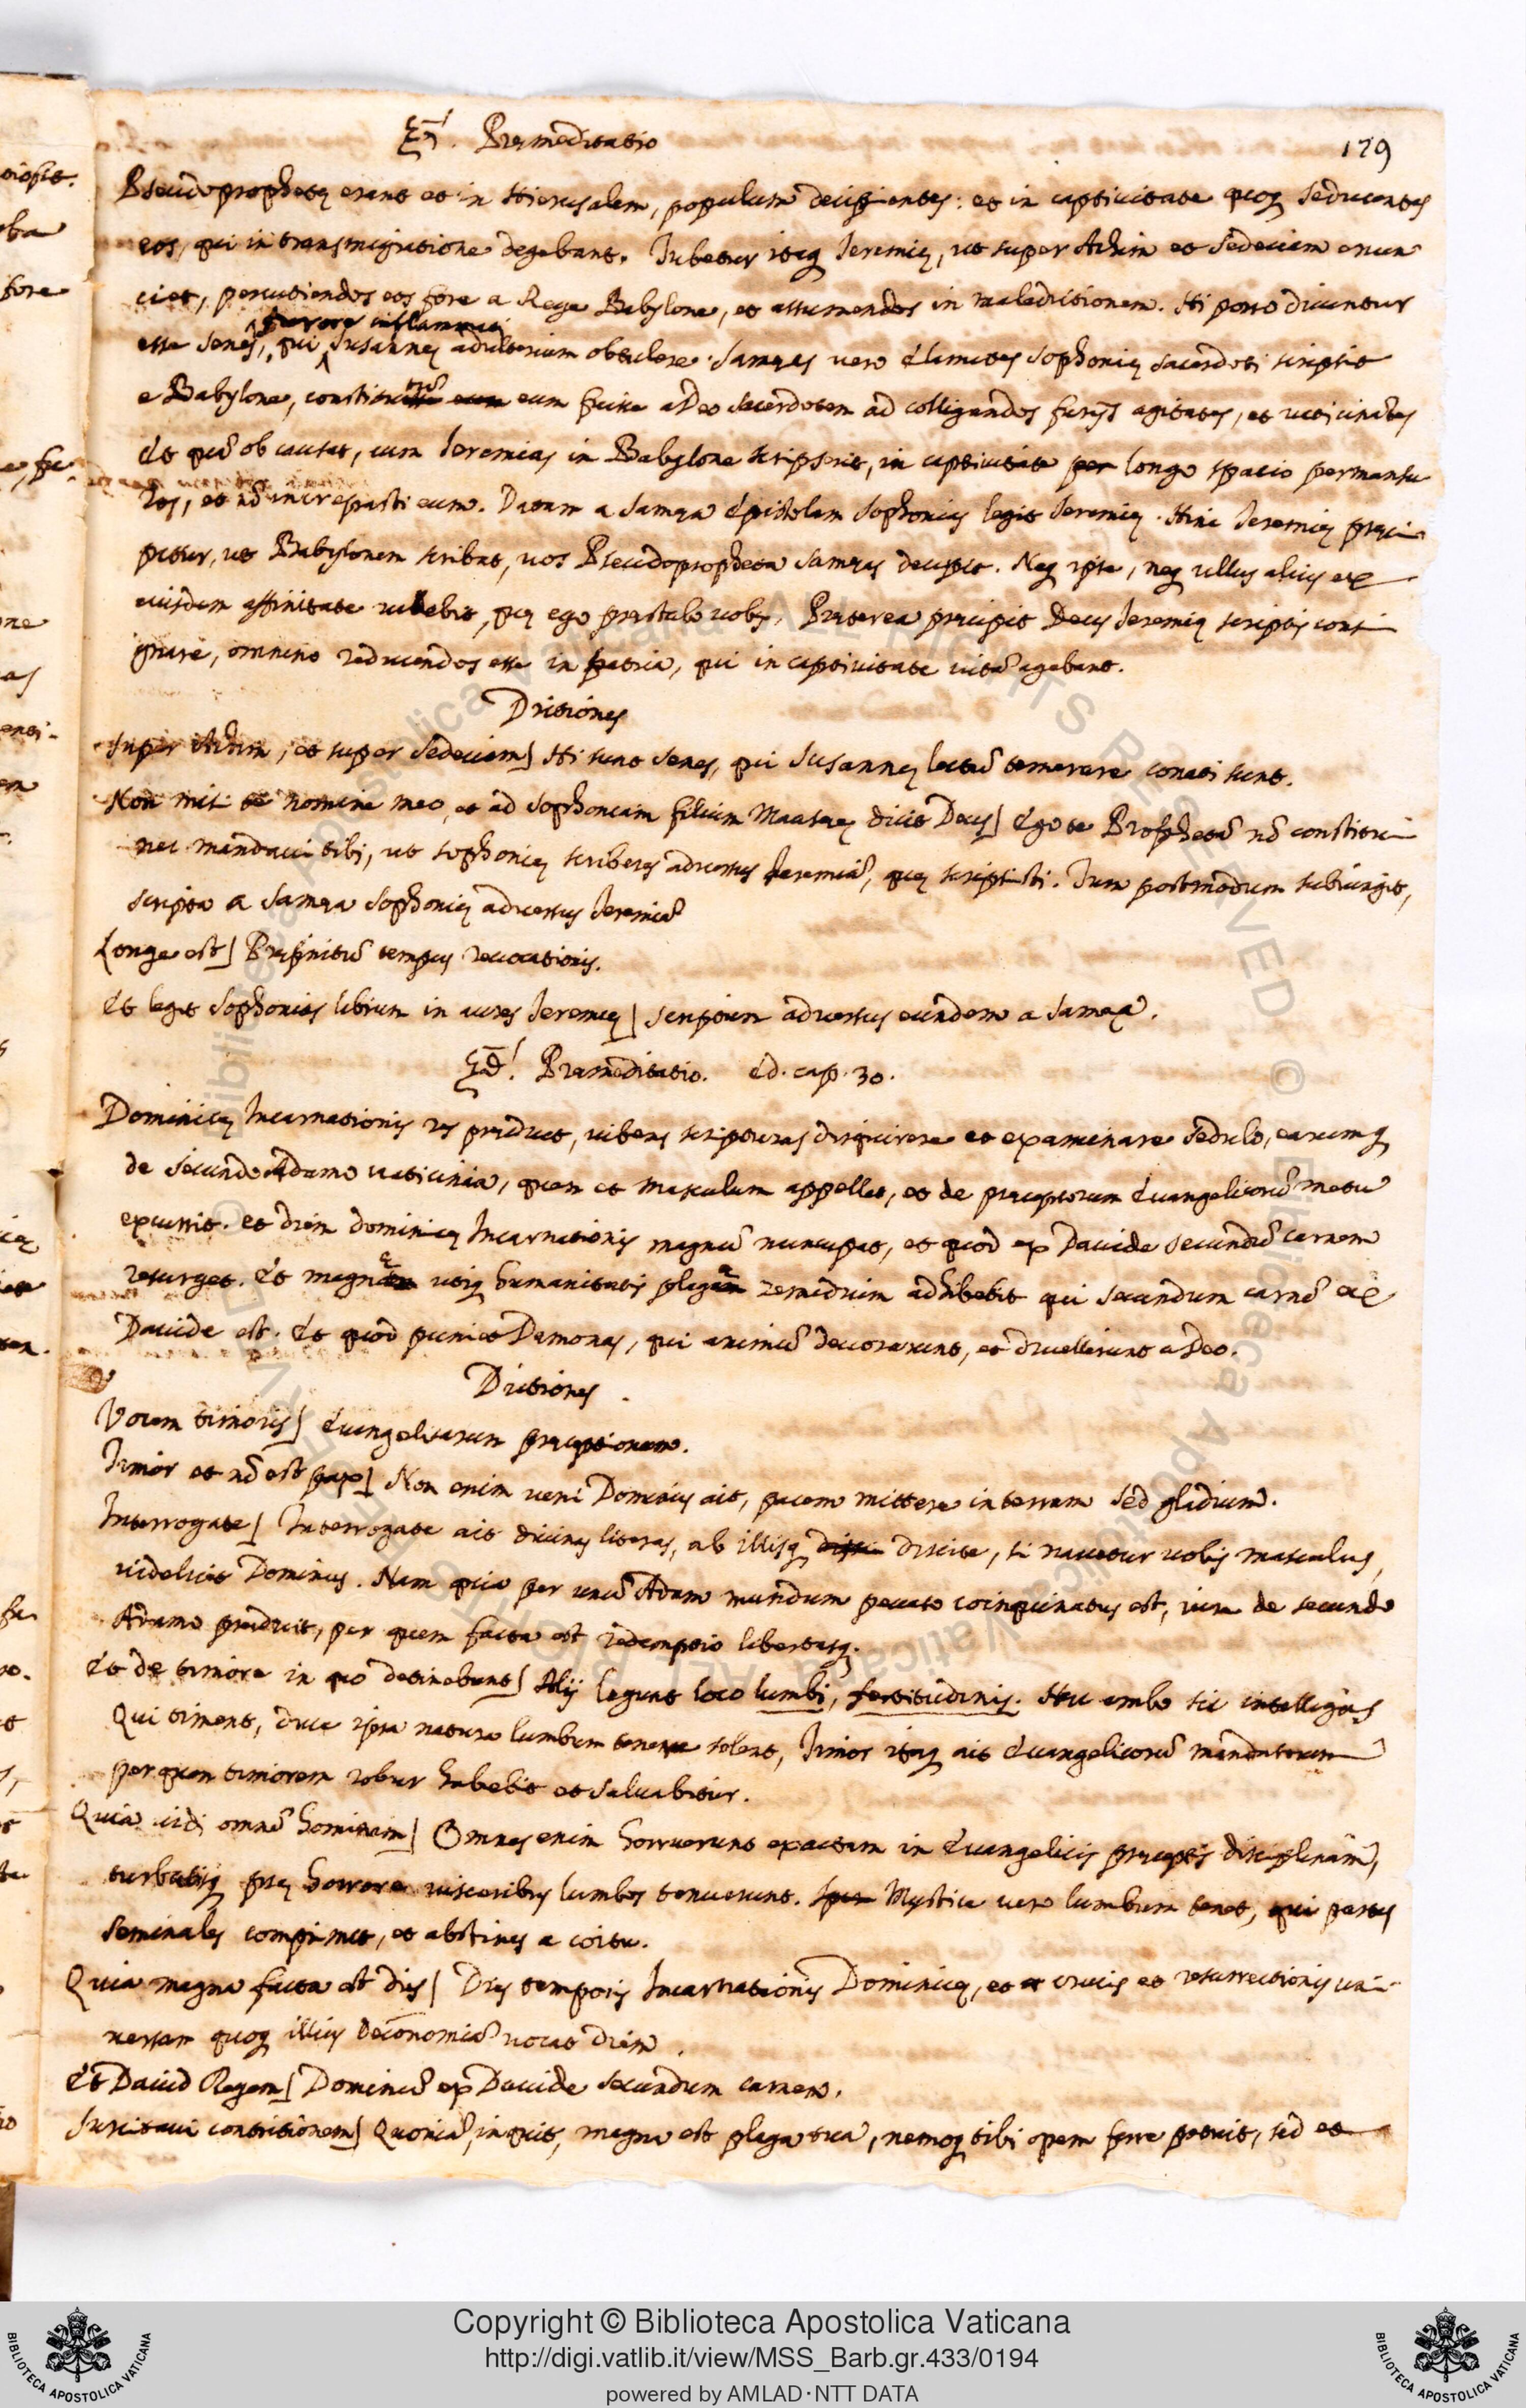 Præmeditatio
179
Pseudoprophetę erant et in Hierusalem, populum decipientes: et in captiuitate quoq seducentes
eos, qui in transmigratione degebant. Iubetur itaq Ieremię, ut super Achim et Sedeciam enun
ciet, percutiendos eos fore a Rege Babylone, et assumendos in maledictionem. Hi porro dicuntur
furore inflammati
esse senes, qui Susannę adulterium obtulere. Samęas vero Elamites Sophonię sacerdoti scripsit
e Babylone, eum fuisse a Deo sacerdotem ad colligendos furijs agitatos, et uaticinātes
Et quā ob causas, cum Ieremias in Babylone scripserit, in captiuitate per longo spatio permansu
ros, et nō increpasti eum. Datam a Samęa Epistolam Sophonias legit Ieremię. Hinc Ieremię pręci
pitur, ut Babylonem scribat, uos Pseudopropheta Samęas decepit. Neq ipse, neq ullus alius ex
eiusdem affinitate uidebit, quę ego pręstabo uobis. Pręterea pręcipit Deus Ieremię scriptis consi
gnare, omnino reducendos esse in patria, qui in captiuitate uitā agebant.
Dictiones
Super Achim, et super Sedeciam] Hi sunt Senes, qui Susannę lectū temerare conati sunt.
Non misi te nomine meo, et ad Sophoniam filium Maasaę dicit Deus] Ego te Prophetā nō constitui
nec mandaui tibi, ut Sophonię scriberes aduersus Ieremiā, quę scripsisti. Tum postmodum subiungit,
scripta a Samęa Sophonię aduersus Ieremiā
Longe est] Pręfinitū tempus reuocationis.
Et legit Sophonias librum in aures Ieremię] scriptum aduersus eundem a Samęa.
Præmeditatio. Ed. cap. 30.
Dominicę Incarnationis res prędicit, iubens scripturas disquirere et examinare sedulo, earumq
de secundo Adamo uaticinia, quem et masculum appellat, et de pręceptorum Euangelicorū metu
excurrit. et diem dominicę Incarnationis magnū nuncupat, et quod ex Dauide secundū carnem
resurget. Et magnę utiq humanitatis plagę remedium adhibebit qui secundum carnē ex
Dauide est. Et quod puniet Demonas, qui animū deuorarunt, et diuellerunt a Deo.
Dictiones
Vocem timoris] Euangelicarum pręceptionum.
Timor et nō est pax] Non enim ueni Dominus ait, pacem mittere in terram sed gladium.
Interrogate] Interrogate ait diuinas literas, ab illisq discite, si nascetur uobis masculus,
uidelicet Dominus. Nam quia per unū Adam mundum peccato coinquinatus est, iam de secundo
Adamo prędicit, per quem facta est redemptio libertasq.
Et de timore in quo detinebunt] Alij legunt loco lumbi, fortitudinis. Hec ambo sic intelligas
Qui timent, duce ipsa natura lumbum tenere solent, Timor itaq ait Euangelicorū mandatorum
per quem timorem robur habebit et saluabitur.
Quia uidi omnē hominem] Omnes enim horruerunt exactam in Euangelicis pręceptis disciplinam,
turbatisq prę horrore uisceribus lumbos tenuerunt. Mystice uero lumbum tenet, qui partes
seminales comprimit, et abstinet a coitu.
Quia magna facta est dies] Dies temporis Incarnationis Dominicę, et crucis et resurrectionis uni
uersam quoq illius Oeconomiā uocat diem.
Et Dauid Regem] Dominū ex Dauide secundum carnem.
Suscitaui contritionem] Quoniā, inquit, magna est plaga tua, nemoq tibi opem ferre potuit, sed et
Copyright © Biblioteca Apostolica Vaticana
http://digi.vatlib.it/view/MSS_Barb.gr.433/0194
powered by AMLAD·NTT DATA